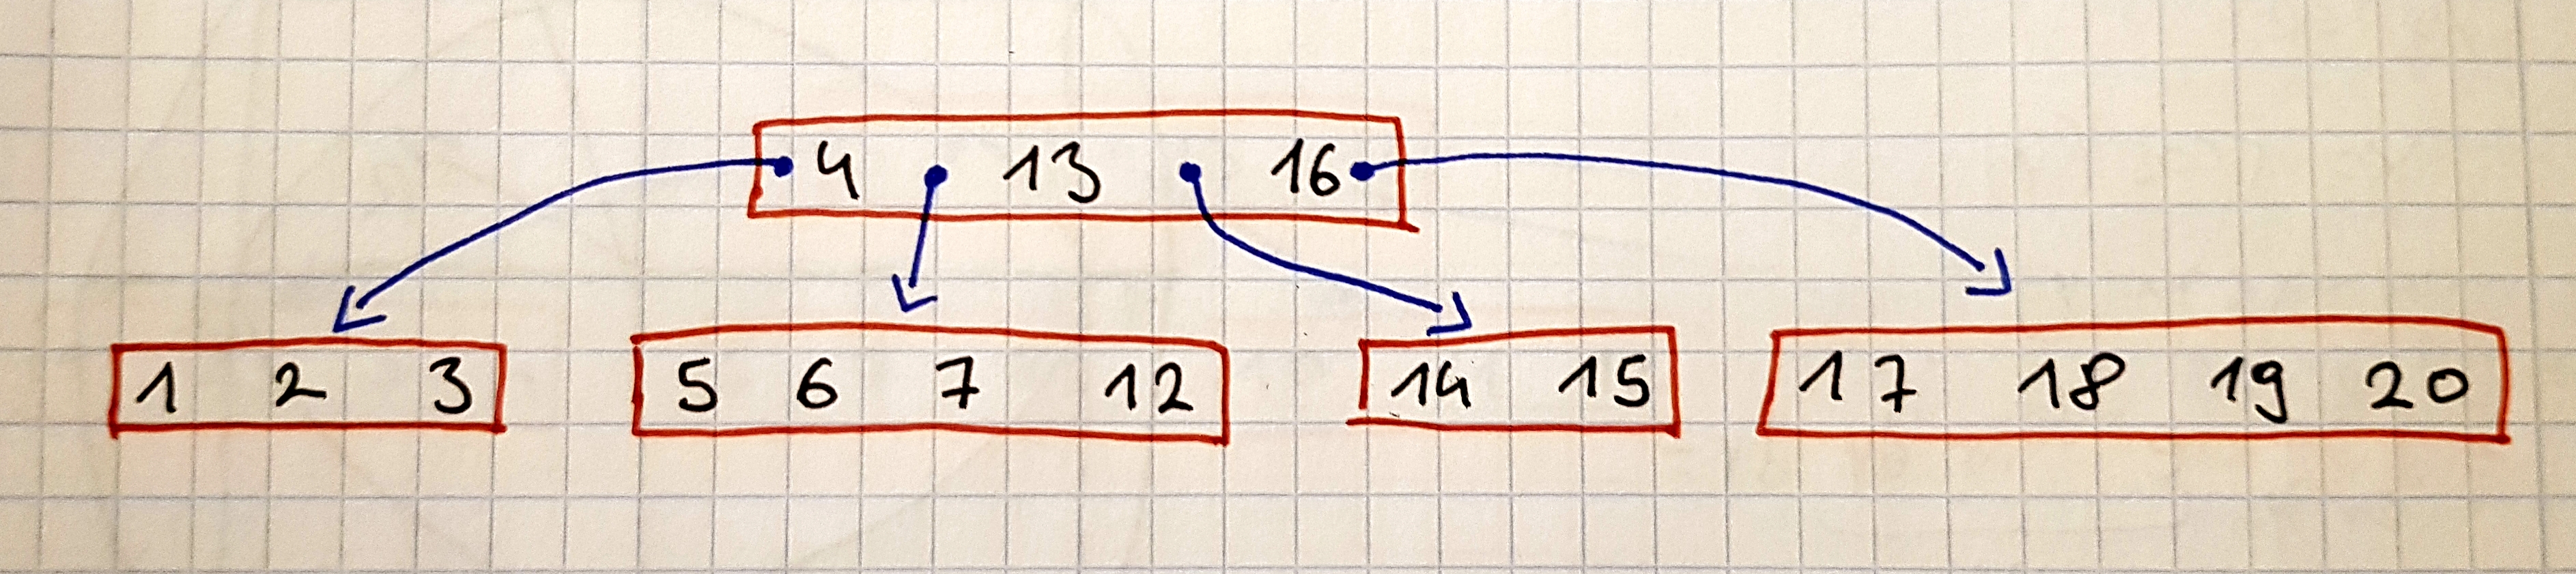 4 13 16
1 2 3 5 6 7 12 14 15 17 18 19 20